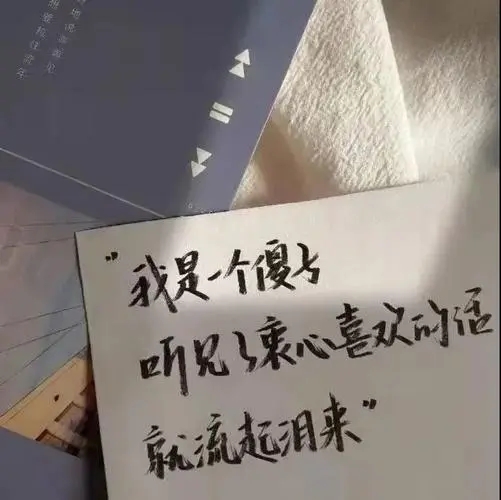 "我是一个傻子
听见了衷心喜欢的话
就流起泪来"